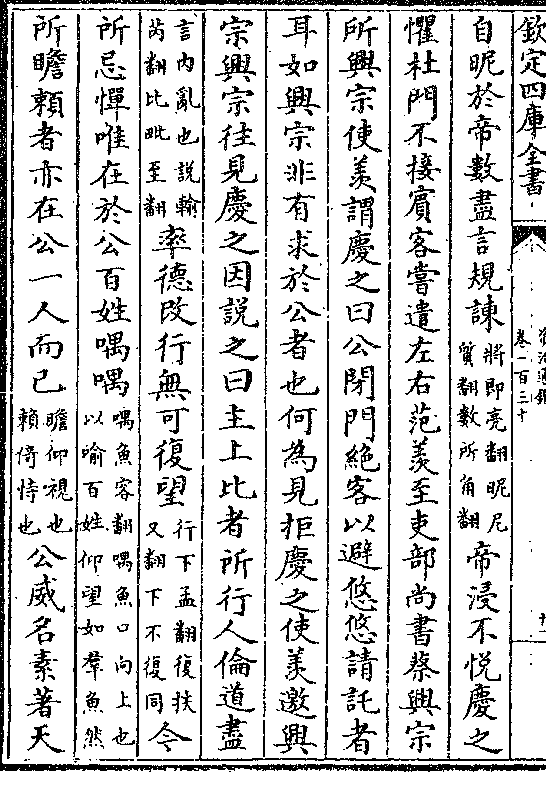 欽定四庫全書
卷一百三十
自昵於帝數盡言規諫將即亮翻昵尼質翻數所角翻帝浸不悦慶之
懼杜門不接賓客嘗遣左右范羡至吏部尚書蔡興宗
所興宗使羡謂慶之曰公閉門絶客以避悠悠請託者
耳如興宗非有求於公者也何為見拒慶之使羡邀興
宗興宗往見慶之因説之曰主上比者所行人倫道盡
言内亂也説輸芮翻比毗至翻率德改行無可復望行下孟翻復扶又翻下不復同今
所忌憚唯在於公百姓喁喁喁魚容翻喁魚口向上也以喻百姓仰望如羣魚然
所瞻賴者亦在公一人而已瞻仰視也賴倚恃也公威名素著天